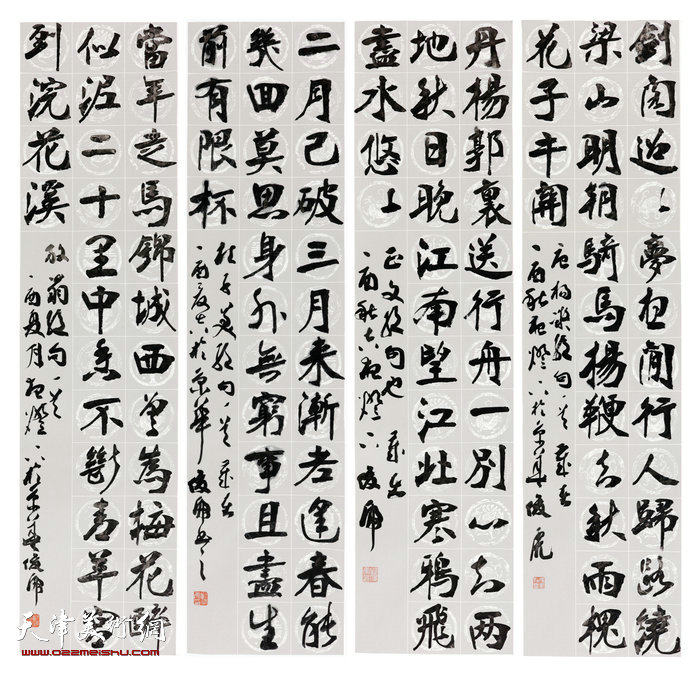 劍閣迢〻夢想間行人歸路繞
梁山明朝騎馬揚鞭去秋雨槐
花子午關
丹楊郭裏送行舟一別心知兩
地秋日晚江南望江北寒鴉飛
盡水悠〻
二月已破三月來漸老逢春能
幾回莫思身外無窮事且盡生
前有限杯
杜子美絕句一首
當年走馬錦城西曾為梅花醉
似泥二十里中香不斷青羊宮
到浣花溪
放翁絕句一首
天津美術網
www.022meishu.com